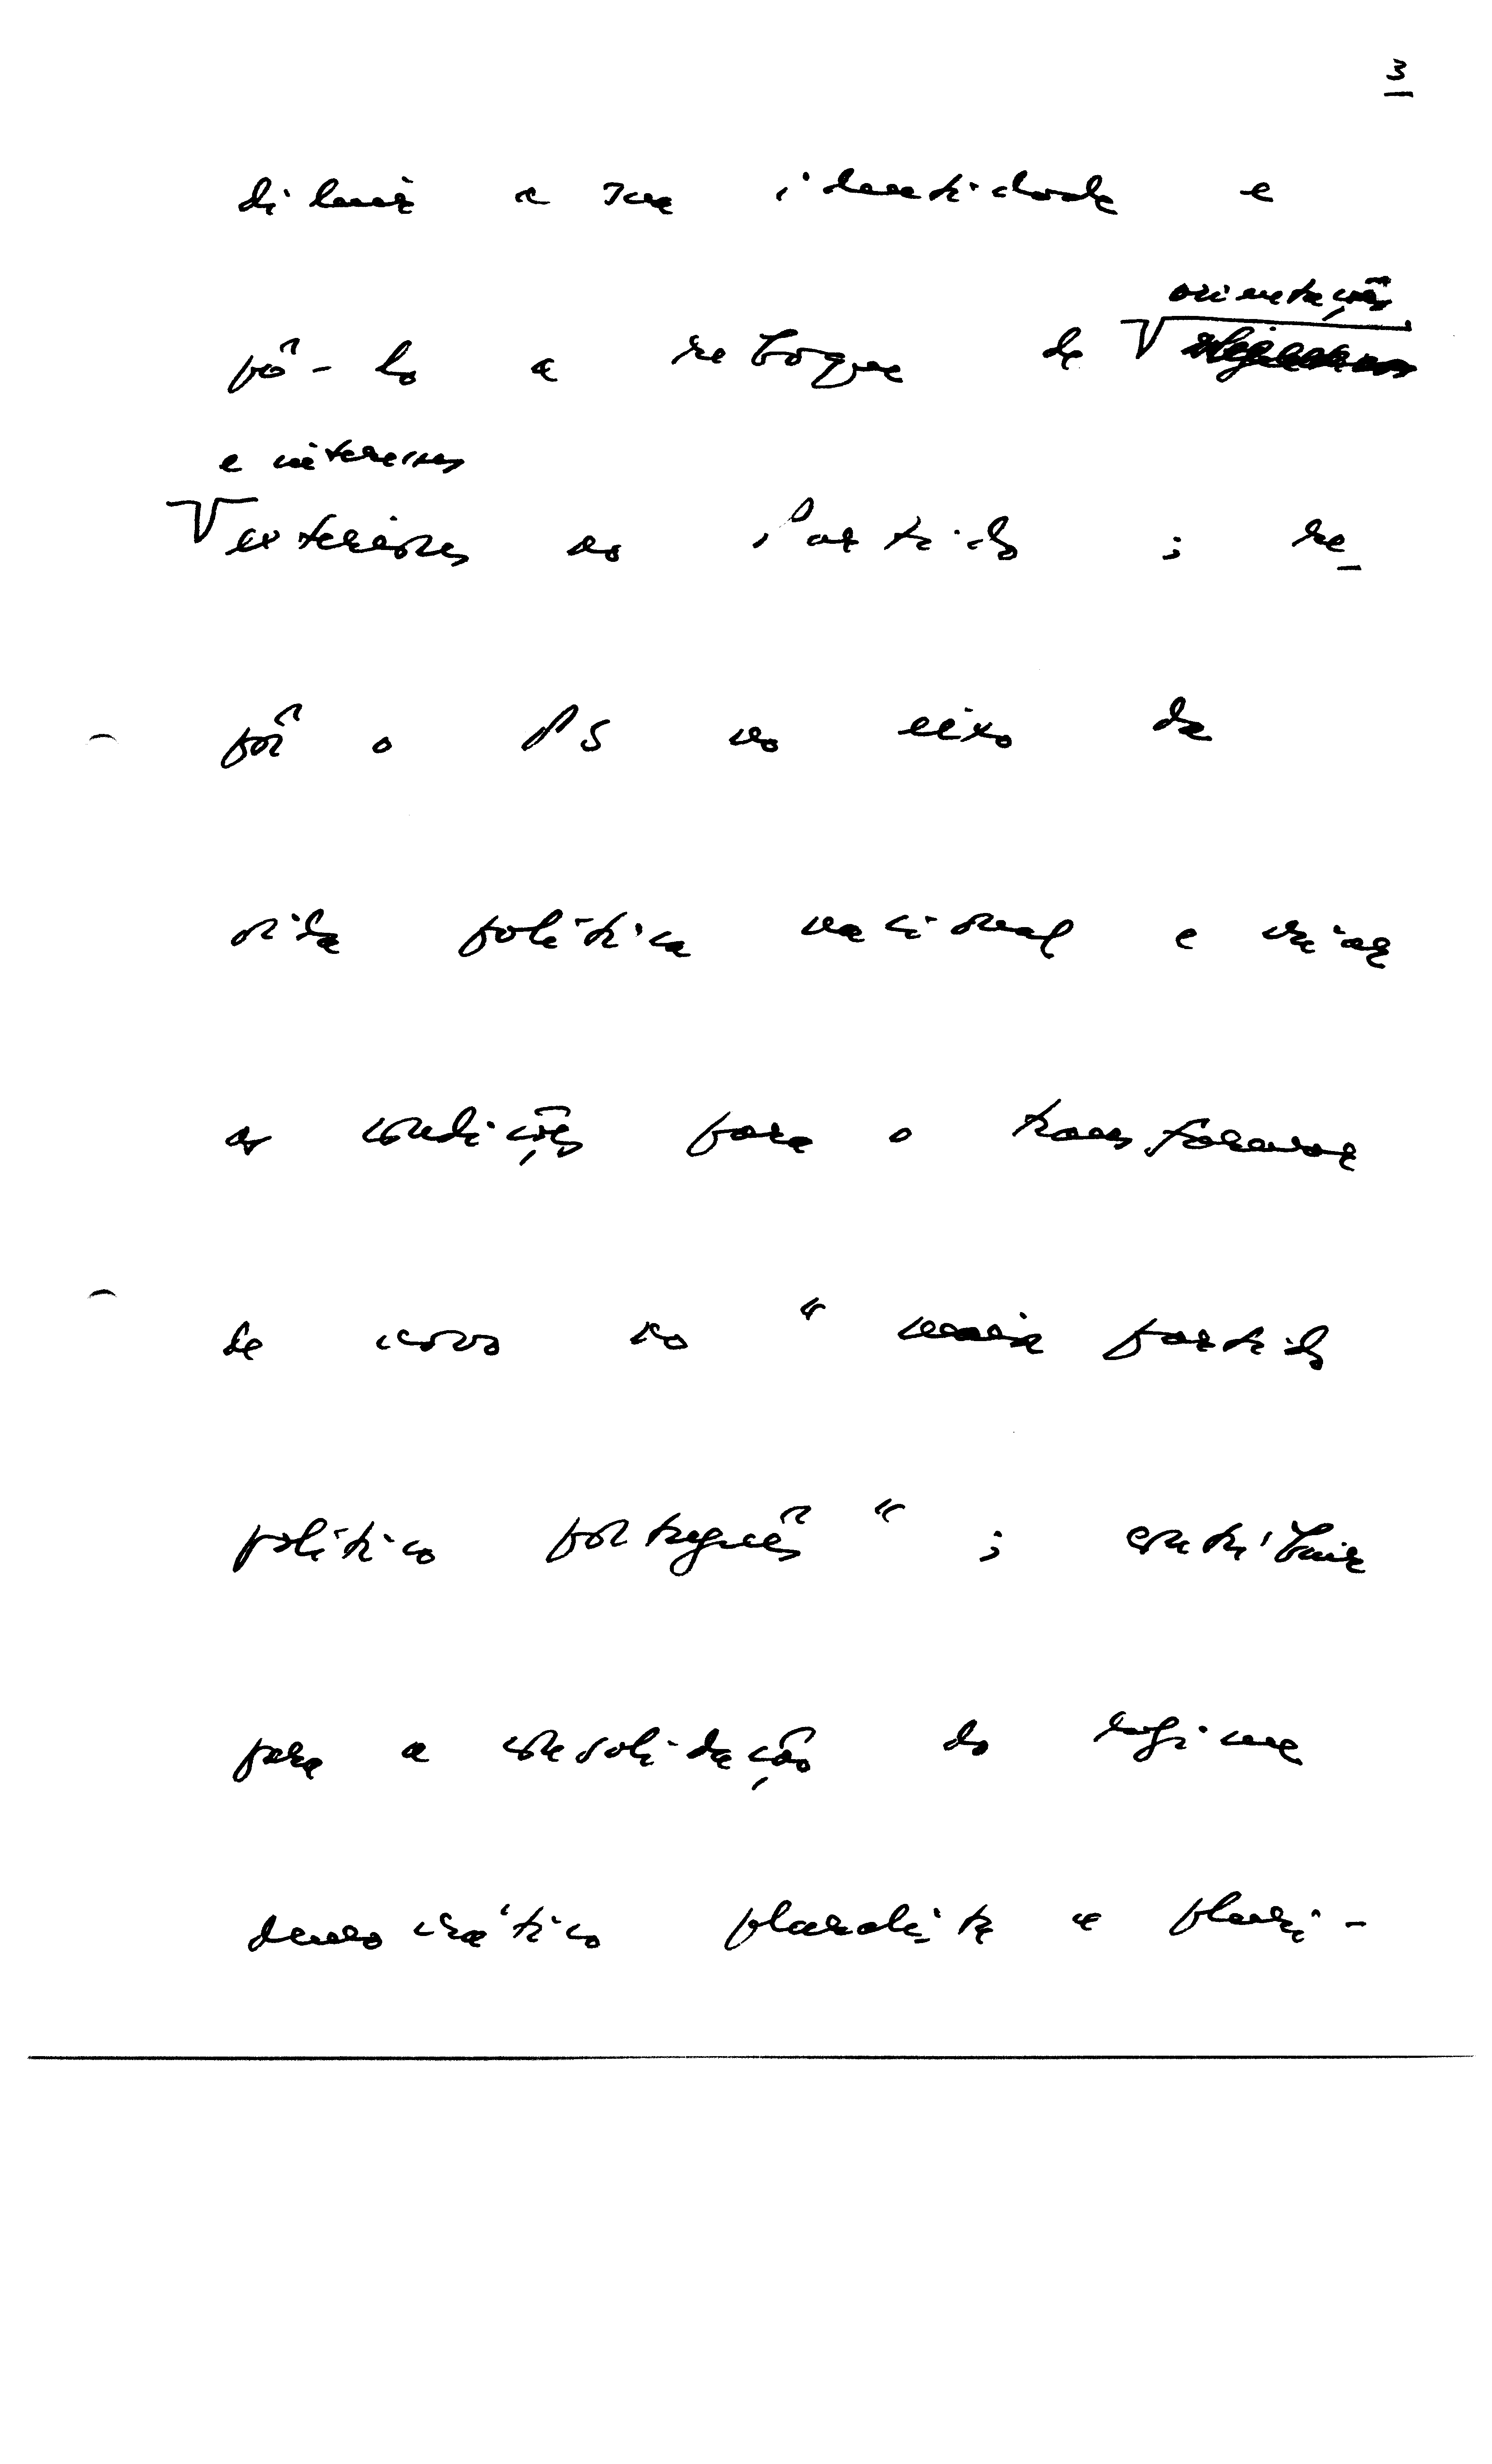 3
diluir a sua identidade e
orientações
pô-lo a reboque de
e interesses
exteriores ao Partido; re-
pôr o PS no eixo da
vida política nacional e criar
as condições para o transformar
de novo no "maior partido
político português"; contribuir
para a consolidação do regime
democrático pluralista e pluri-